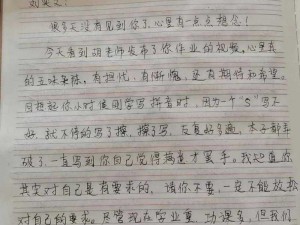 很多天没有见到你了,心里有一点点想念!
今天看到胡老师发布了你作业的视频,心里真
的五味杂陈,有担忧,有惭愧,还有期待和希望。
回想起你小时候刚学写拼音时,因为一个“5”写不
好,就不停的写了擦,擦了写,反复好多遍,本子都弄
破了,一直写到你自己觉得满意才罢手。我知道你
其实对自己是有要求的,请你不要,一定不能放松
对自己的要求。尽管现在学业重,功课多,但我们